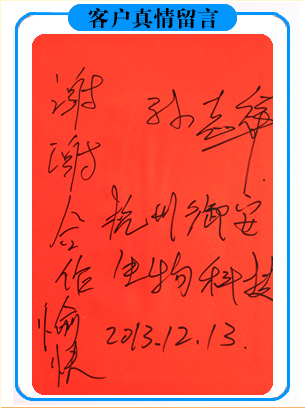 客户真情留言
谢谢合作愉快
杭州御安
生物科技
2013.12.13.